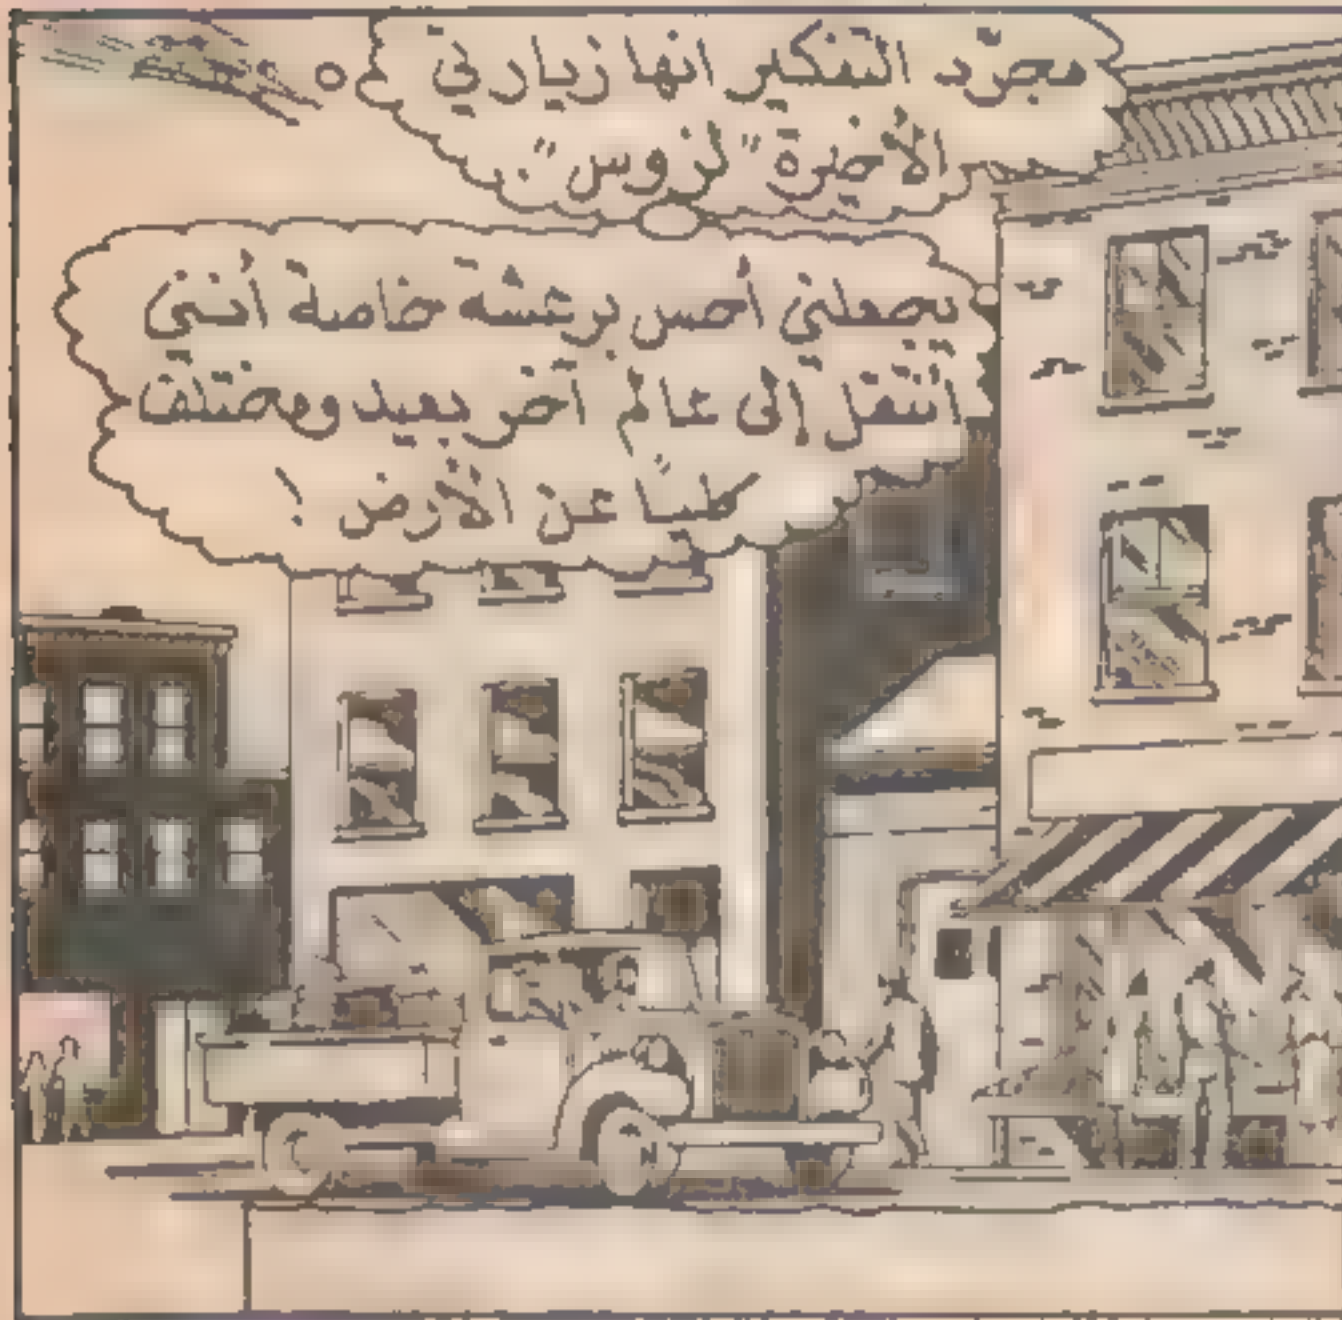 مجرّد التفكير انها زيارتي
الأخيرة "لزوس".
يجعلني أحس برعشة خاصة أنني
انتقل إلى عالم آخر بعيد ومختلف
كليًا عن الأرض !